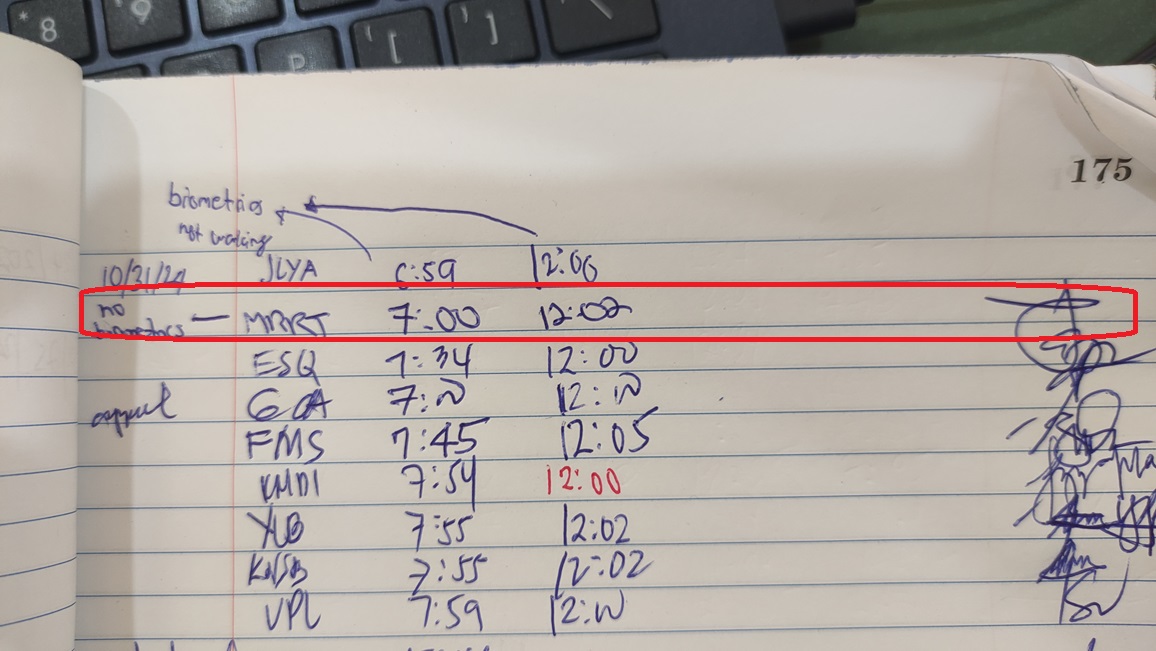 *8 9 P [ ]
175
biometrics
not working
10/21/24 JLYA 6:59 12:00
no biometrics — MRRT 7:00 12:02
ESQ 7:34 12:00
7:00 12:00
FMS 7:45 12:05
KMDI 7:54 12:00
YLB 7:55 12:02
7:55 12:02
VPL 7:59 12:00